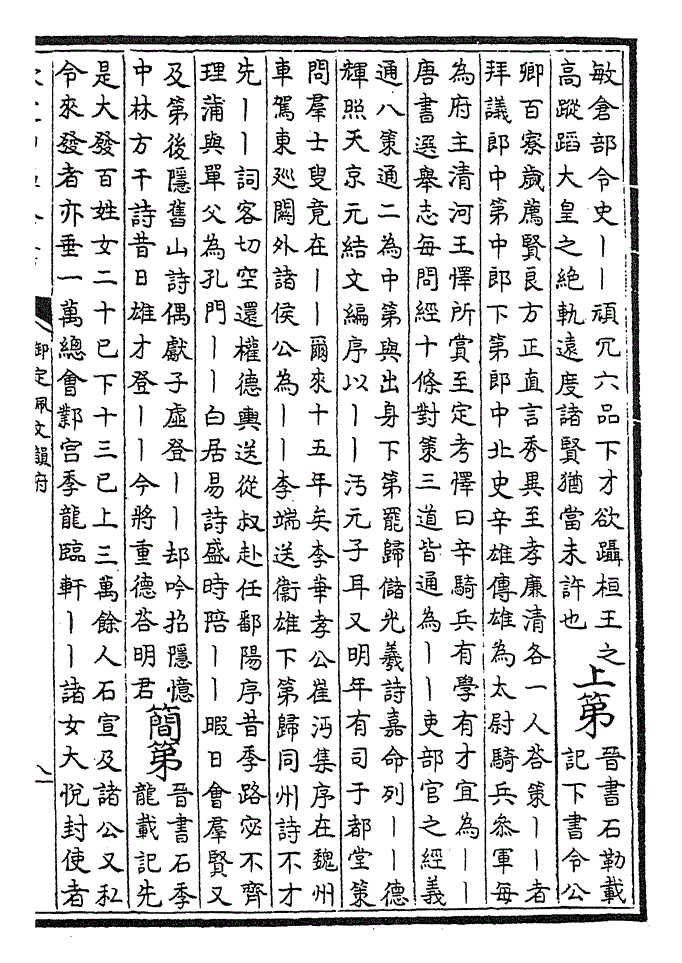 敏倉部令史丨丨頑冗六品下才欲躡桓王之
高蹤蹈大皇之絶軌遠度諸賢猶當未許也
上第
晉書石勒載
記下書令公
卿百寮歲薦賢良方正直言秀異至孝廉清各一人荅策丨丨者
拜議郎中第中郎下第郎中北史辛雄傳雄為太尉騎兵叅軍每
為府主清河王懌所賞至定考懌曰辛騎兵有學有才宜為丨丨
唐書選舉志每問經十條對策三道皆通為丨丨吏部官之經義
通八策通二為中第與出身下第罷歸儲光羲詩嘉命列丨丨德
輝照天京元結文編序以丨丨汚元子耳又明年有司于都堂策
問羣士叟竟在丨丨爾來十五年矣李華孝公崔沔集序在魏州
車駕東廵關外諸侯公為丨丨李端送衞雄下第歸同州詩不才
先丨丨詞客切空還權德輿送從叔赴任鄱陽序昔季路宓不齊
理蒲與單父為孔門丨丨白居易詩盛時陪丨丨暇日會羣賢又
及第後隱舊山詩偶獻子虛登丨丨却吟招隱憶
中林方干詩昔日雄才登丨丨今將重德荅明君
簡第
晉書石季
龍載記先
是大發百姓女二十已下十三已上三萬餘人石宣及諸公又私
令來發者亦垂一萬總會鄴宫季龍臨軒丨丨諸女大悦封使者
御定佩文韻府
八